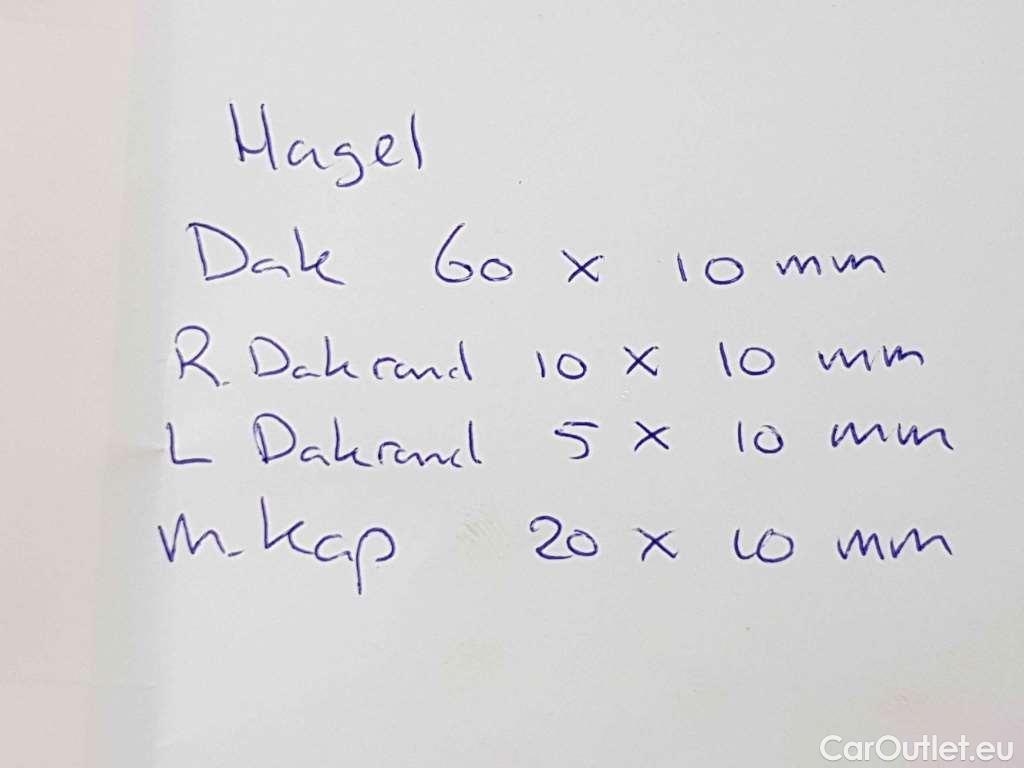 Hagel
Dak 60 x 10 mm
R. Dakrand 10 x 10 mm
L Dakrand 5 x 10 mm
m.kap 20 x 10 mm
CarOutlet.eu